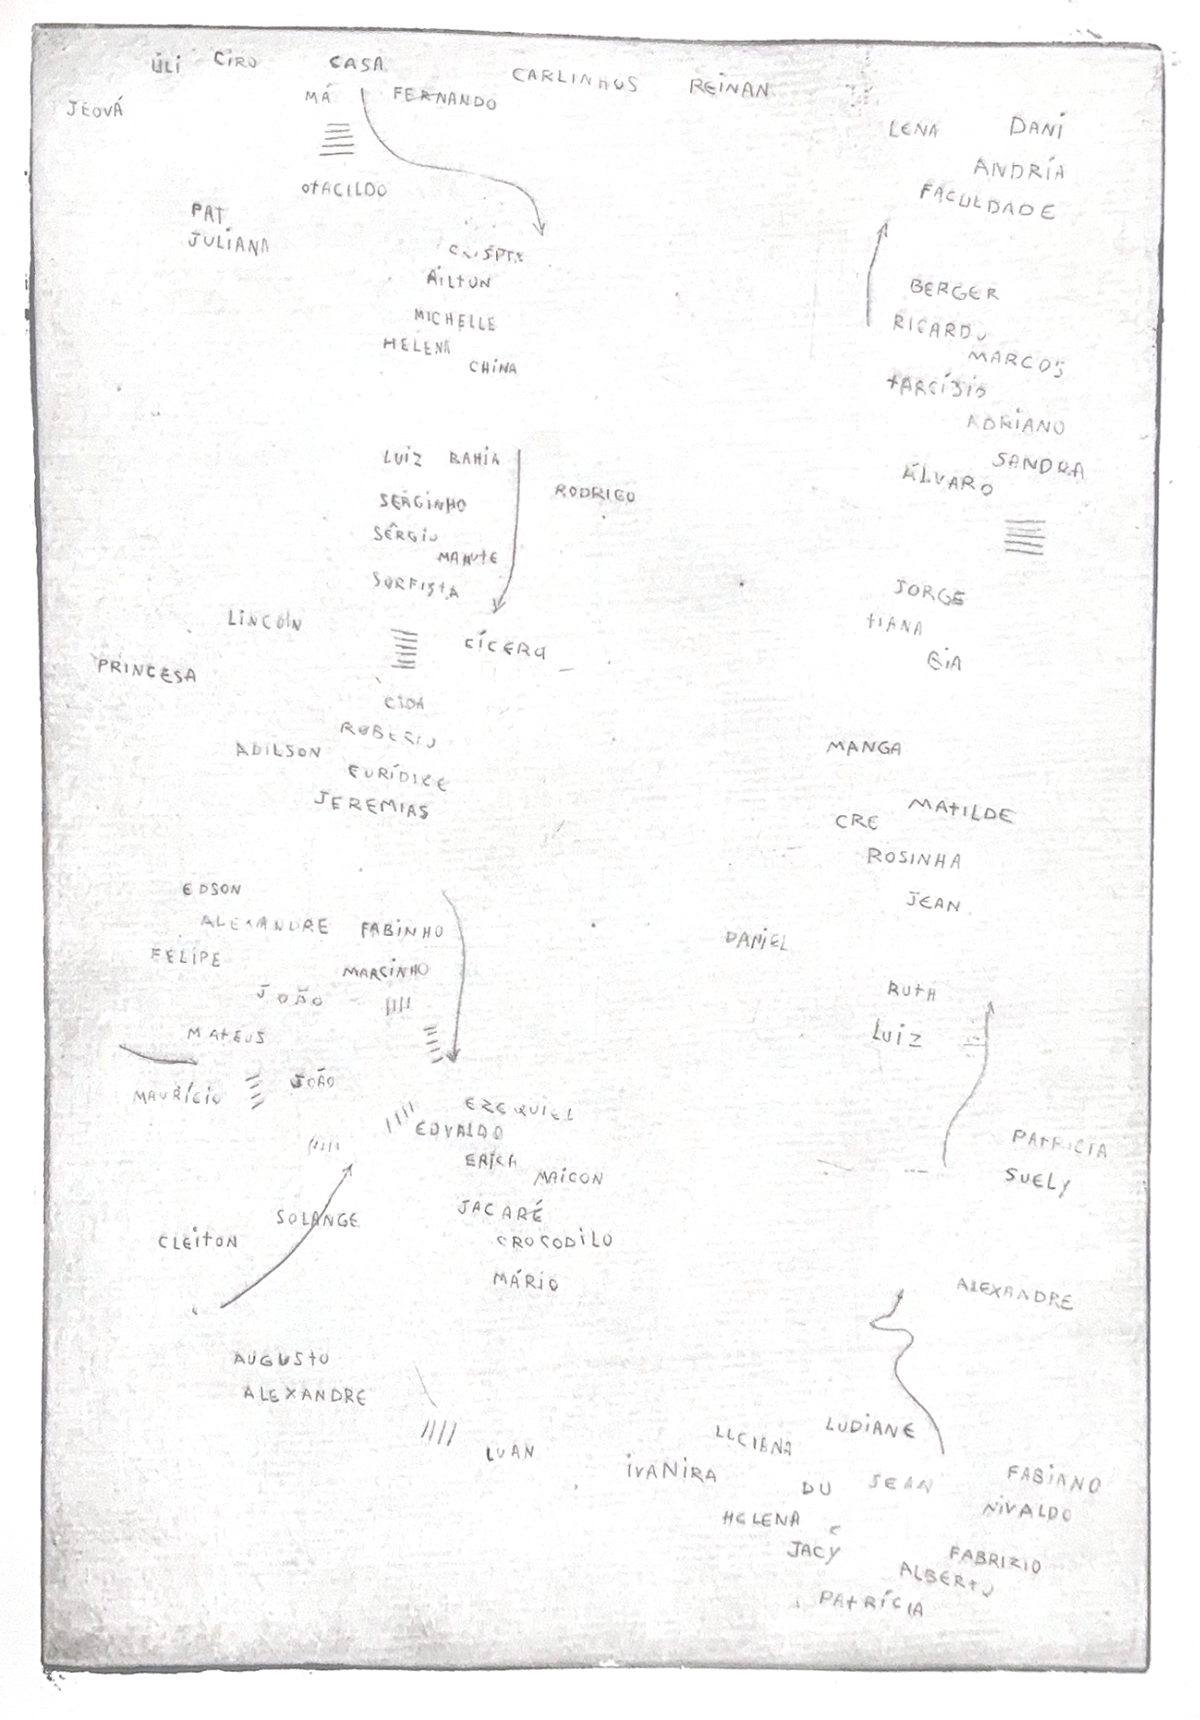 ULI CIRO CASA
CARLINHOS REINAN
JEOVÁ
MÁ FERNANDO
LENA DANI
ANDRÍA
FACULDADE
OTACILDO
PAT
JULIANA
AILTON
MICHELLE
HELENA
CHINA
BERGER
RICARDO
MARCOS
TARCÍSIO
ADRIANO
SANDRA
ÁLVARO
LUIZ BAHIA
RODRIGO
SERGINHO
SÉRGIO
MANUTE
SURFISTA
JORGE
TIANA
EIA
LINCOLN
CÍCERO
PRINCESA
CIDA
ROBERIO
ADILSON
EURÍDICE
JEREMIAS
MANGA
MATILDE
CRE
ROSINHA
JEAN
EDSON
ALEXANDRE FABINHO
FELIPE
MARCINHO
JOÃO
MATEUS
DANIEL
RUTH
LUIZ
MAURÍCIO
JOÃO
EZEQUIEL
EDVALDO
ERICA
MAICON
JACARÉ
CROCODILO
MÁRIO
PATRICIA
SUELY
SOLANGE
CLEITON
ALEXANDRE
AUGUSTO
ALEXANDRE
LUAN
LUCIANA
LUDIANE
IVANIRA
DU
JEAN
FABIANO
NIVALDO
HELENA
JACY
FABRIZIO
ALBERTO
PATRÍCIA